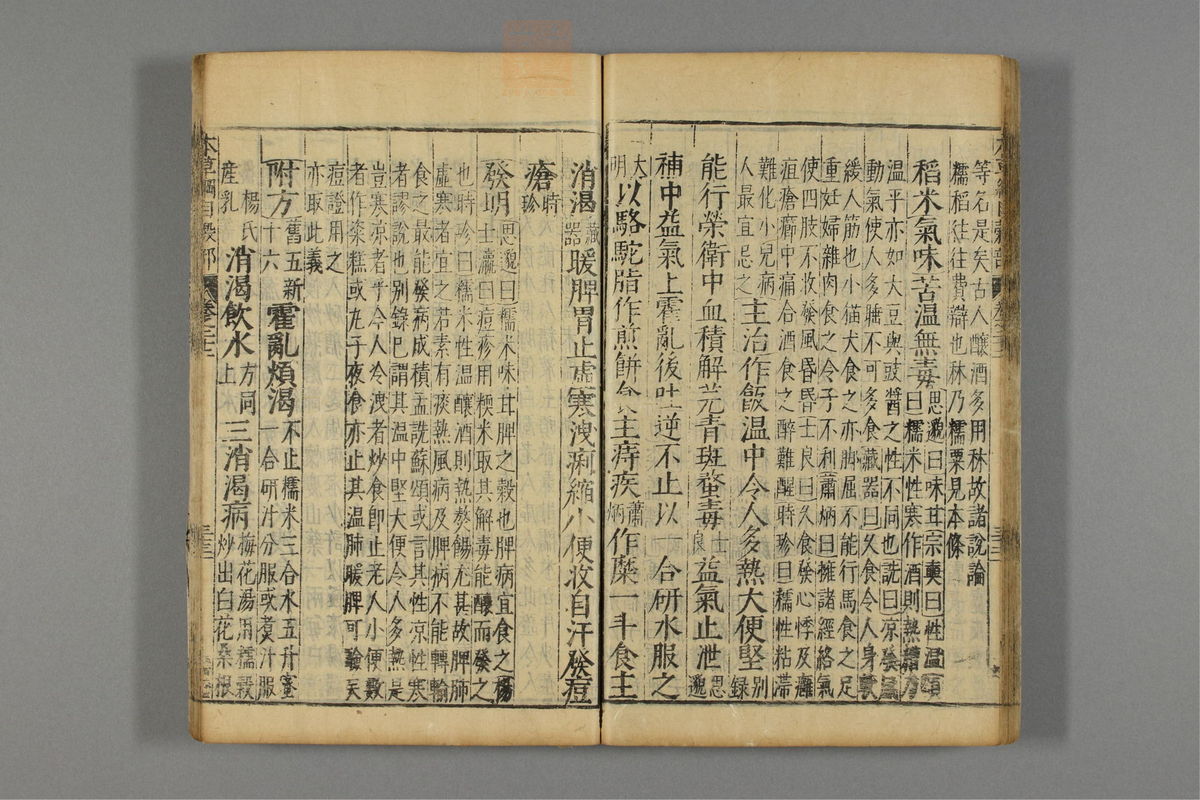 等名是矣古人釀酒多用秫故諸說論
糯稻往往費辯也秫乃糯粟見本條
稻米氣味苦溫無毒思邈曰味甘宗奭曰性溫頌
曰糯米性寒作酒則熱糟乃
溫平亦如大豆與豉醬之性不同也詵曰凉發風
動氣使人多睡不可多食藏器曰久食令人身軟
緩人筋也小猫犬食之亦脚屈不能行馬食之足
重妊婦雜肉食之令子不利蕭炳曰擁諸經絡氣
使四肢不收發風昏昏士良曰久食發心悸及癰
疽瘡癤中痛合酒食之醉難醒時珍曰糯性粘滯
難化小兒病
人最宜忌之主治作飯溫中令人多熱大便堅別
錄
能行榮衛中血積解芫青斑蝥毒士
良益氣止泄思
邈
補中益氣止霍亂後吐逆不止以一合研水服之
大
明以駱駝脂作煎餅食主痔疾蕭
炳作糜一斗食主
消渴藏
器暖脾胃止虛寒洩痢縮小便收自汗發痘
瘡時
珍
發明思邈曰糯米味甘脾之穀也脾病宜食之楊
士瀛曰痘疹用粳米取其解毒能釀而發之
也時珍曰糯米性溫釀酒則熱熬餳尤甚故脾肺
虛寒者宜之若素有痰熱風病及脾病不能轉輸
食之最能發病成積孟詵蘇頌或言其性凉性寒
者謬說也別錄已謂其溫中堅大便令人多熱是
豈寒凉者乎今人冷洩者炒食即止老人小便數
者作粢糕或丸子夜食亦止其溫肺暖脾可驗矣
痘證用之
亦取此義
附方舊五新
十六霍亂煩渴不止糯米三合水五升蜜
一合研汁分服或煑汁服
楊氏
產乳消渴飲水方同
上三消渴病梅花湯用糯穀
炒出白花桑根
本草綱目穀部
卷二十二